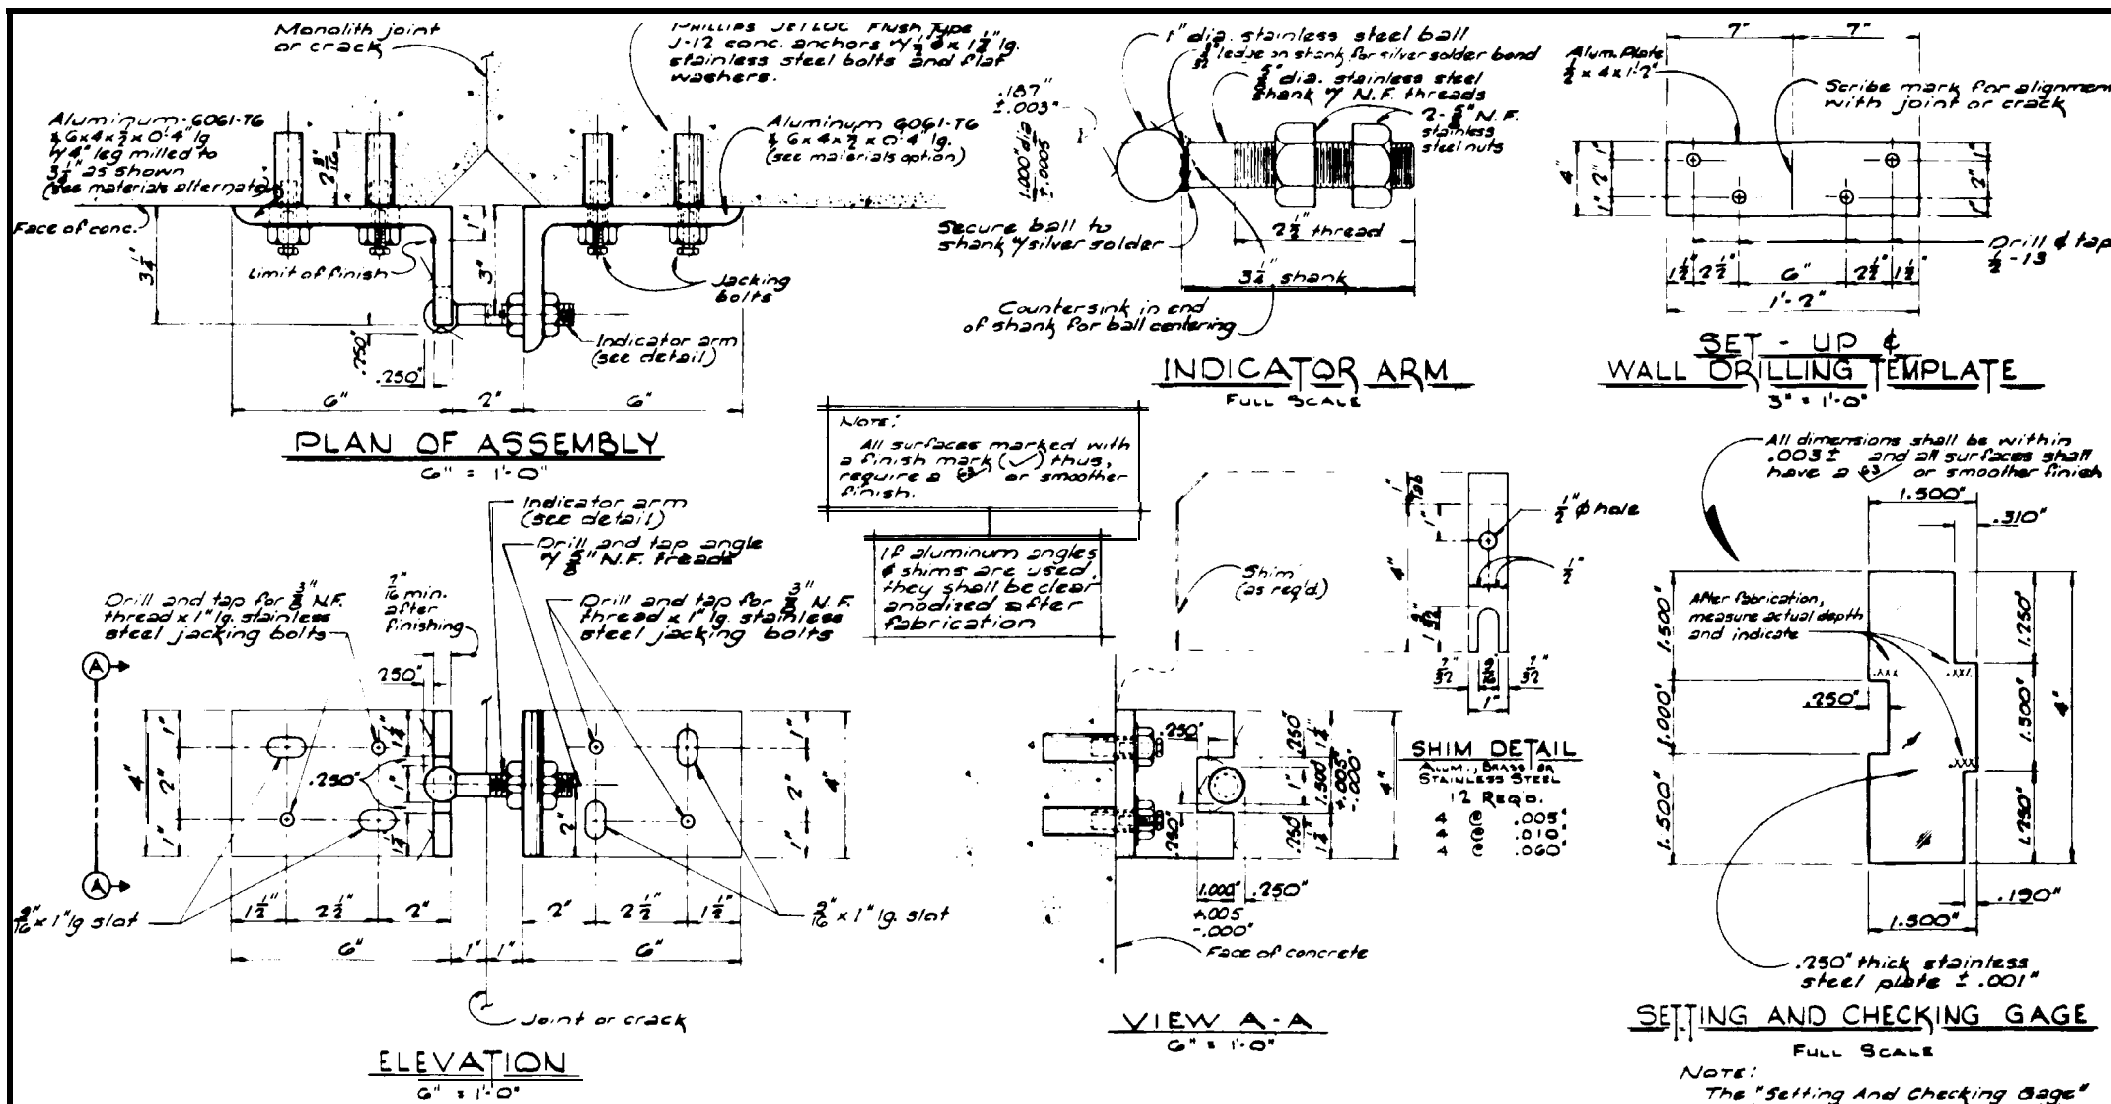 Monolith joint
or crack
PHILLIPS JETLOC Flush Type
J-12 conc. anchors w/ ½"φ x 1½" lg.
stainless steel bolts and flat
washers.
Aluminum-6061-T6
6x4x½ x 0'-4" lg
w/4" leg milled to
3¼" as shown
(see materials alternate)
Aluminum 6061-T6
6x4x½ x 0'-4" lg.
(see materials option)
Face of conc.
3¼"
Limit of finish
1"
3"
Jacking
bolts
.250"
.250"
Indicator arm
(see detail)
6"
2"
6"
PLAN OF ASSEMBLY
6" = 1'-0"
1" dia. stainless steel ball
ledge on shank for silver solder bond
⅝" dia. stainless steel
shank w/ N.F. threads
.187"
±.003"
1.000" dia
±.0005
2-⅝" N.F.
stainless
steel nuts
Secure ball to
shank w/silver solder
2½" thread
3¼" shank
Countersink in end
of shank for ball centering
INDICATOR ARM
FULL SCALE
7"
7"
Alum. Plate
½ x 4 x 1'-2"
Scribe mark for alignment
with joint or crack
4"
1" 2" 1"
1" 2" 1"
Drill & tap
½-13
1½" 2½" 6" 2½" 1½"
1'-2"
SET-UP &
WALL DRILLING TEMPLATE
3" = 1'-0"
NOTE:
All surfaces marked with
a finish mark (✓) thus,
require a 63✓ or smoother
finish.
If aluminum angles
& shims are used,
they shall be clear
anodized after
fabrication
Indicator arm
(see detail)
Drill and tap angle
w/ ⅝" N.F. treads
Drill and tap for ⅜" N.F.
thread x 1" lg. stainless
steel jacking bolts
7/16" min.
after
finishing
Drill and tap for ⅜" N.F.
thread x 1" lg. stainless
steel jacking bolts
A
A
.250"
.250"
4"
1" 2" 1"
1"
2"
1" 2" 1"
4"
9/16" x 1" lg slot
1½" 2½" 2"
2" 2½" 1½"
9/16" x 1" lg. slot
6" 1" 1" 6"
Joint or crack
ELEVATION
6" = 1'-0"
Shim
(as req'd.)
1" Tab
1"
4"
½" φ hole
½"
7/32" 9/16" 7/32"
1"
SHIM DETAIL
ALUM., BRASS OR
STAINLESS STEEL
12 REQD.
4 @ .005"
4 @ .010"
4 @ .060"
.250"
.250"
1"
1.500
+.005"
-.000"
4"
.250
.250"
1.000" .250"
+.005
-.000"
Face of concrete
VIEW A-A
6" = 1'-0"
All dimensions shall be within
.003± and all surfaces shall
have a 63✓ or smoother finish
1.500"
.310"
After fabrication,
measure actual depth
and indicate
1.500"
1.000"
1.500"
.xxx
.xxx
.xxx
.250"
1.250"
1.500"
1.250"
4"
.190"
1.500"
.250" thick stainless
steel plate ±.001"
SETTING AND CHECKING GAGE
FULL SCALE
NOTE:
The "Setting And Checking Gage"